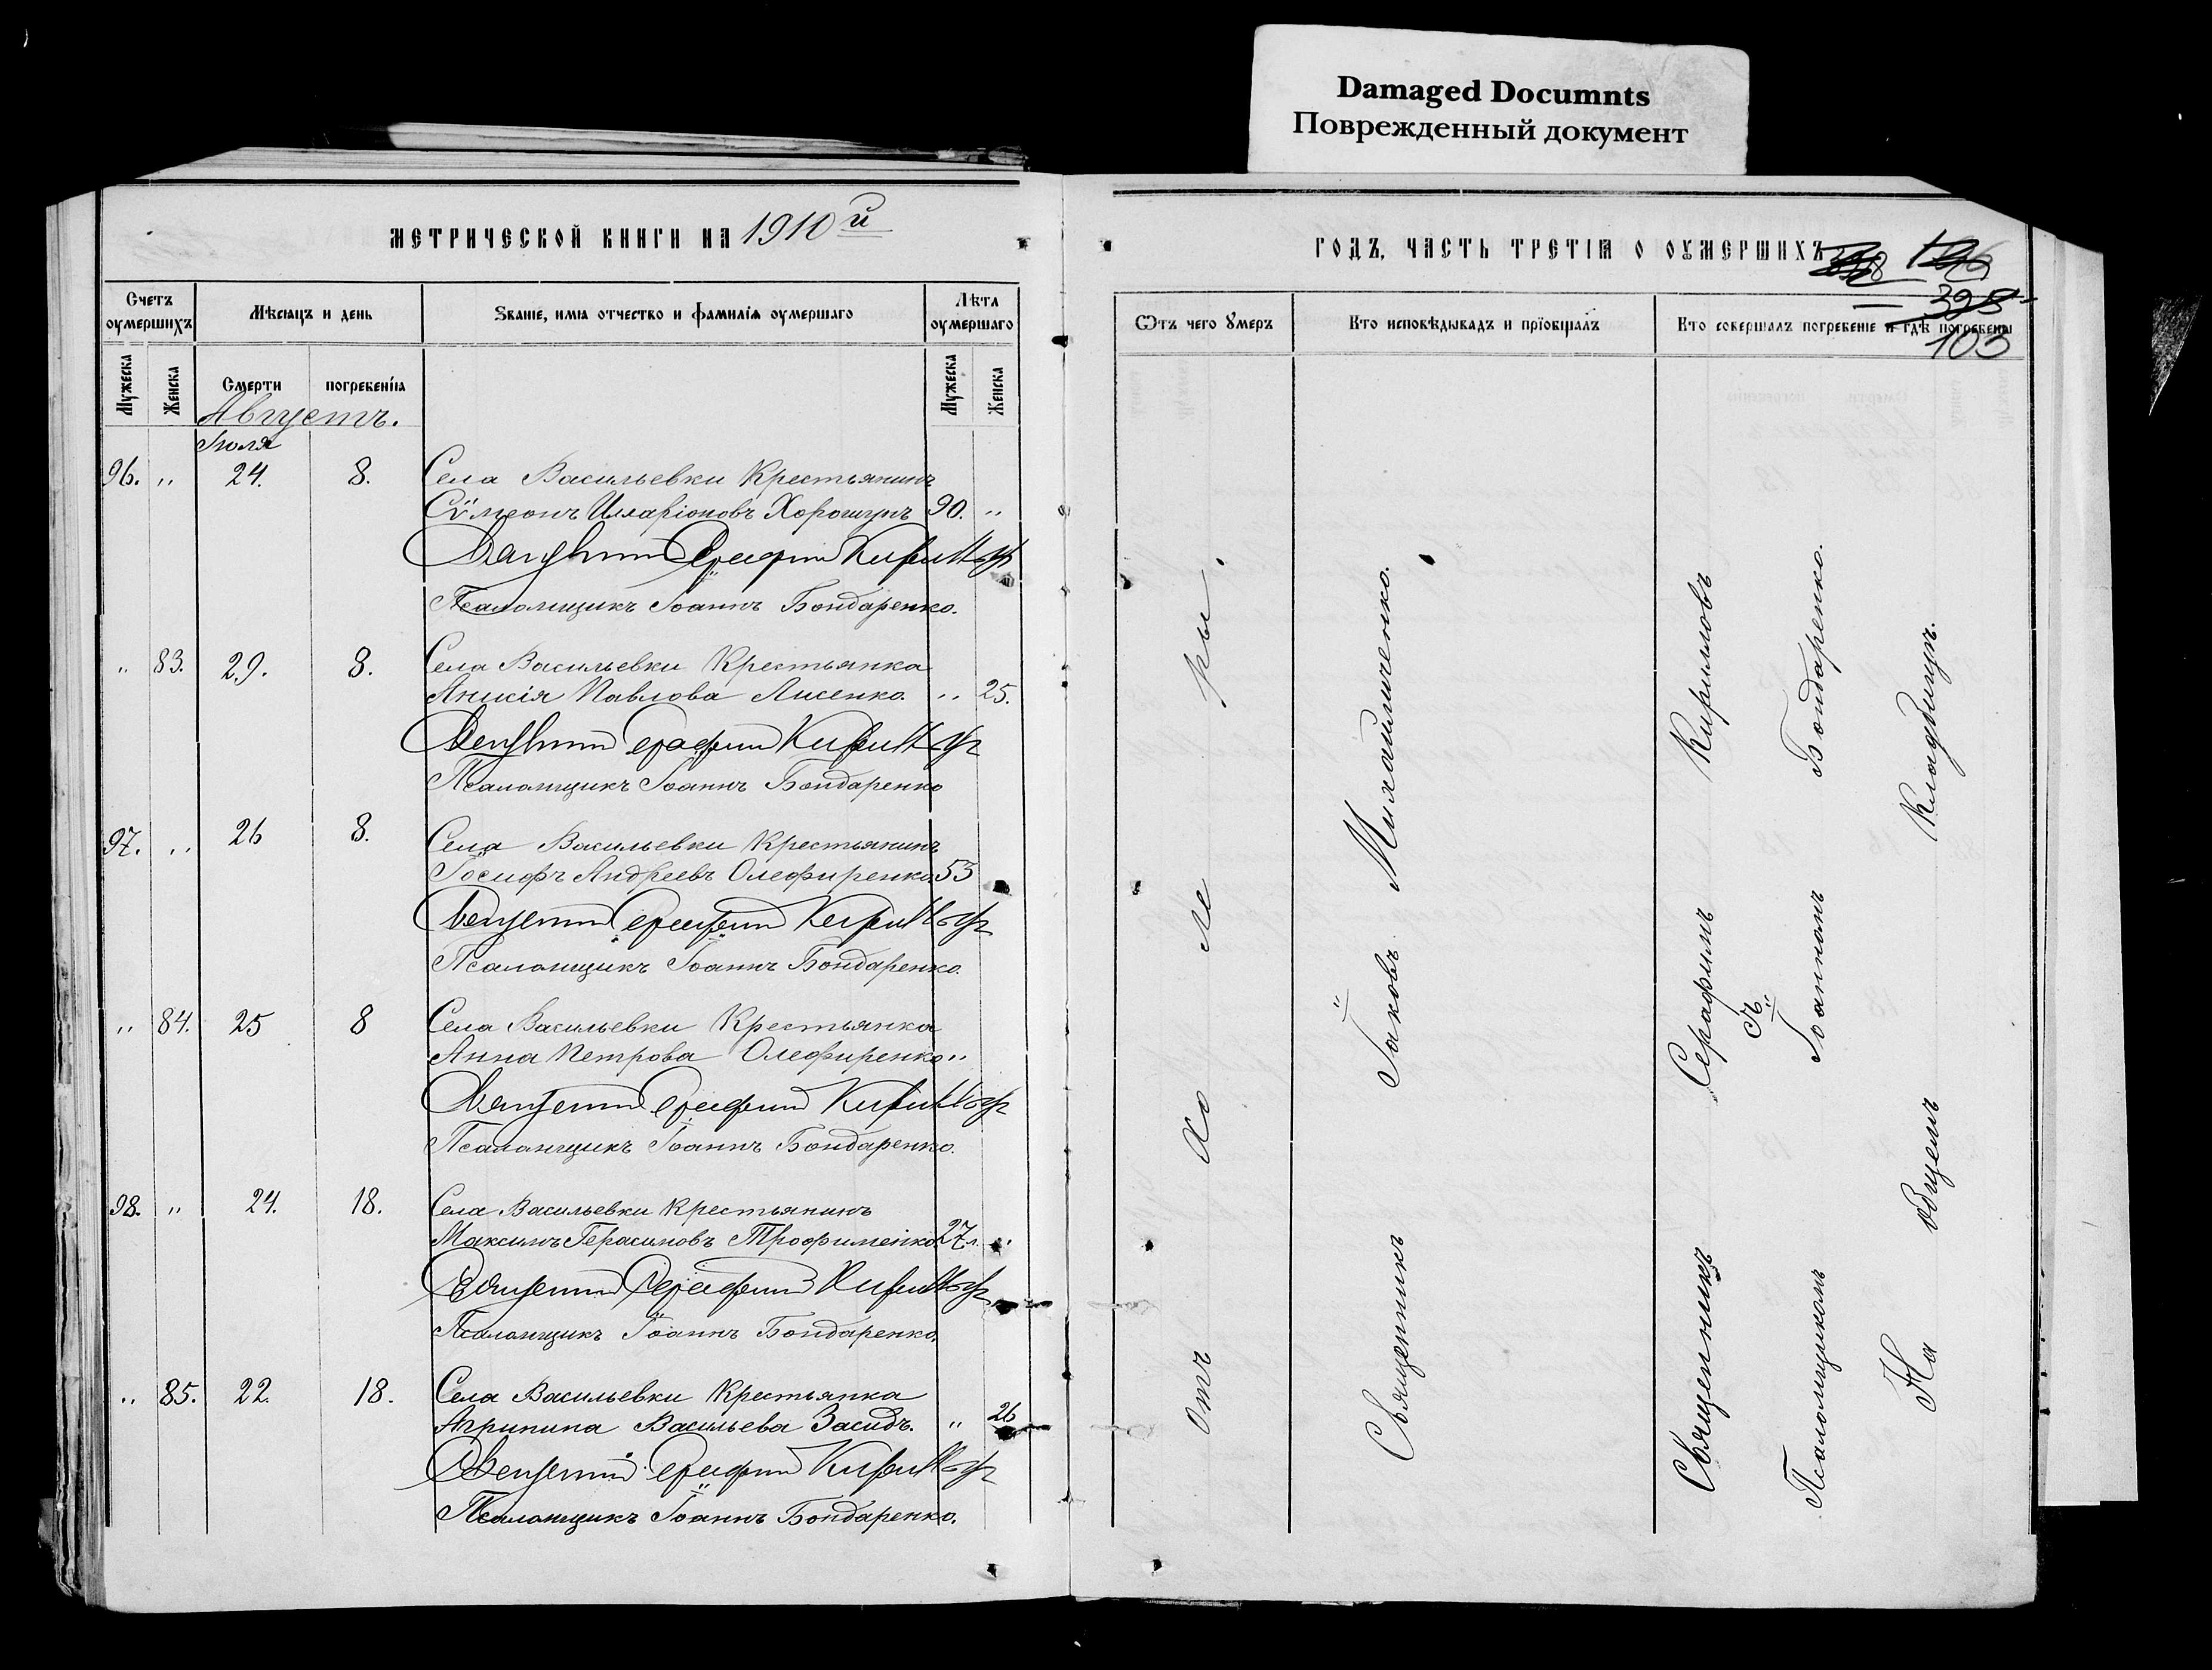 Damaged Documnts
Поврежденный документ
МЕТРИЧЕСКОЙ КНИГИ НА 1910й
Счетъ оумершихъ
Мѣсяцъ и день
Званіе, имя отчество и фамилія оумершаго
Лѣта оумершаго
Мужеска
Женска
Смерти
погребенія
Мужеска
Женска
Августъ.
Іюля
96. „ 24. 8. Села Васильевки Крестьянинъ
Сѵмеонъ Иларіоновъ Хорошунъ 90. „
Священникъ Серафимъ Кириловъ
Псаломщикъ Іоаннъ Бондаренко.
„ 83. 29. 8. Села Васильевки Крестьянка
Анисія Павлова Лисенко. „ 25.
Священникъ Серафимъ Кириловъ
Псаломщикъ Іоаннъ Бондаренко
97. „ 26 8. Села Васильевки Крестьянинъ
Іосифъ Андреевъ Олефиренко. 53
Священникъ Серафимъ Кириловъ
Псаломщикъ Іоаннъ Бондаренко.
„ 84. 25 8 Села Васильевки Крестьянка
Анна Петрова Олефиренко „
Священникъ Серафимъ Кириловъ
Псаломщикъ Іоаннъ Бондаренко.
98. „ 24. 18. Села Васильевки Крестьянинъ
Максимъ Герасимовъ Трофименко. 27 л. „
Священникъ Серафимъ Кириловъ
Псаломщикъ Іоаннъ Бондаренко.
„ 85. 22. 18. Села Васильевки Крестьянка
Агрипина Васильева Засидъ. „ 26
Священникъ Серафимъ Кириловъ
Псаломщикъ Іоаннъ Бондаренко.
ГОДЪ, ЧАСТЬ ТРЕТІЯ О ОУМЕРШИХЪ
395
103
Ѿтъ чего Ѹмеръ
Кто исповѣдывадъ и прїобщалъ
Кто совершалъ погребеніе и гдѣ погребены
Отъ хо ле ры.
Священникъ Іаковъ Михайличенко.
Священникъ Серафимъ Кириловъ
съ
Псаломщикомъ Іоанномъ Бондаренко.
На общемъ Кладбищѣ.